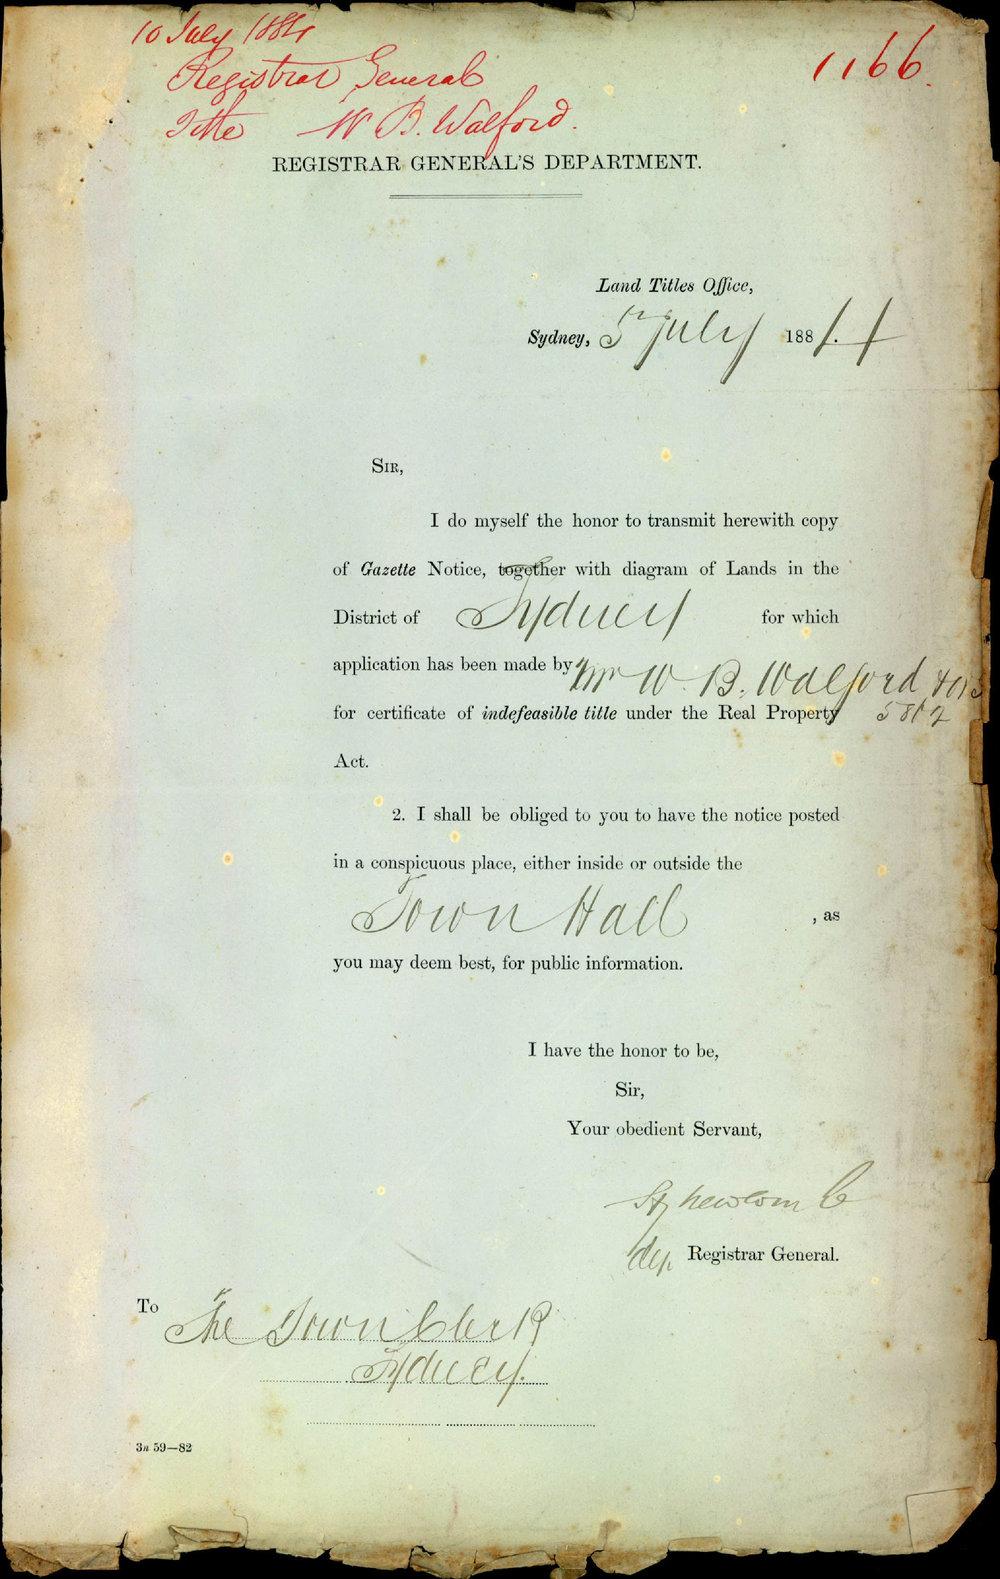 10 July 1884
Registrar General
Title W B. Walford.
1166.
REGISTRAR GENERAL'S DEPARTMENT.
Land Titles Office,
Sydney, 5 July 1884.
SIR,
I do myself the honor to transmit herewith copy
of Gazette Notice, together with diagram of Lands in the
District of Sydney for which
application has been made by Mr W. B. Walford
for certificate of indefeasible title under the Real Property
Act.
2. I shall be obliged to you to have the notice posted
in a conspicuous place, either inside or outside the
Town Hall, as
you may deem best, for public information.
I have the honor to be,
Sir,
Your obedient Servant,
Newcomb
dep Registrar General.
To The Town Clerk
Sydney.
3n 59—82